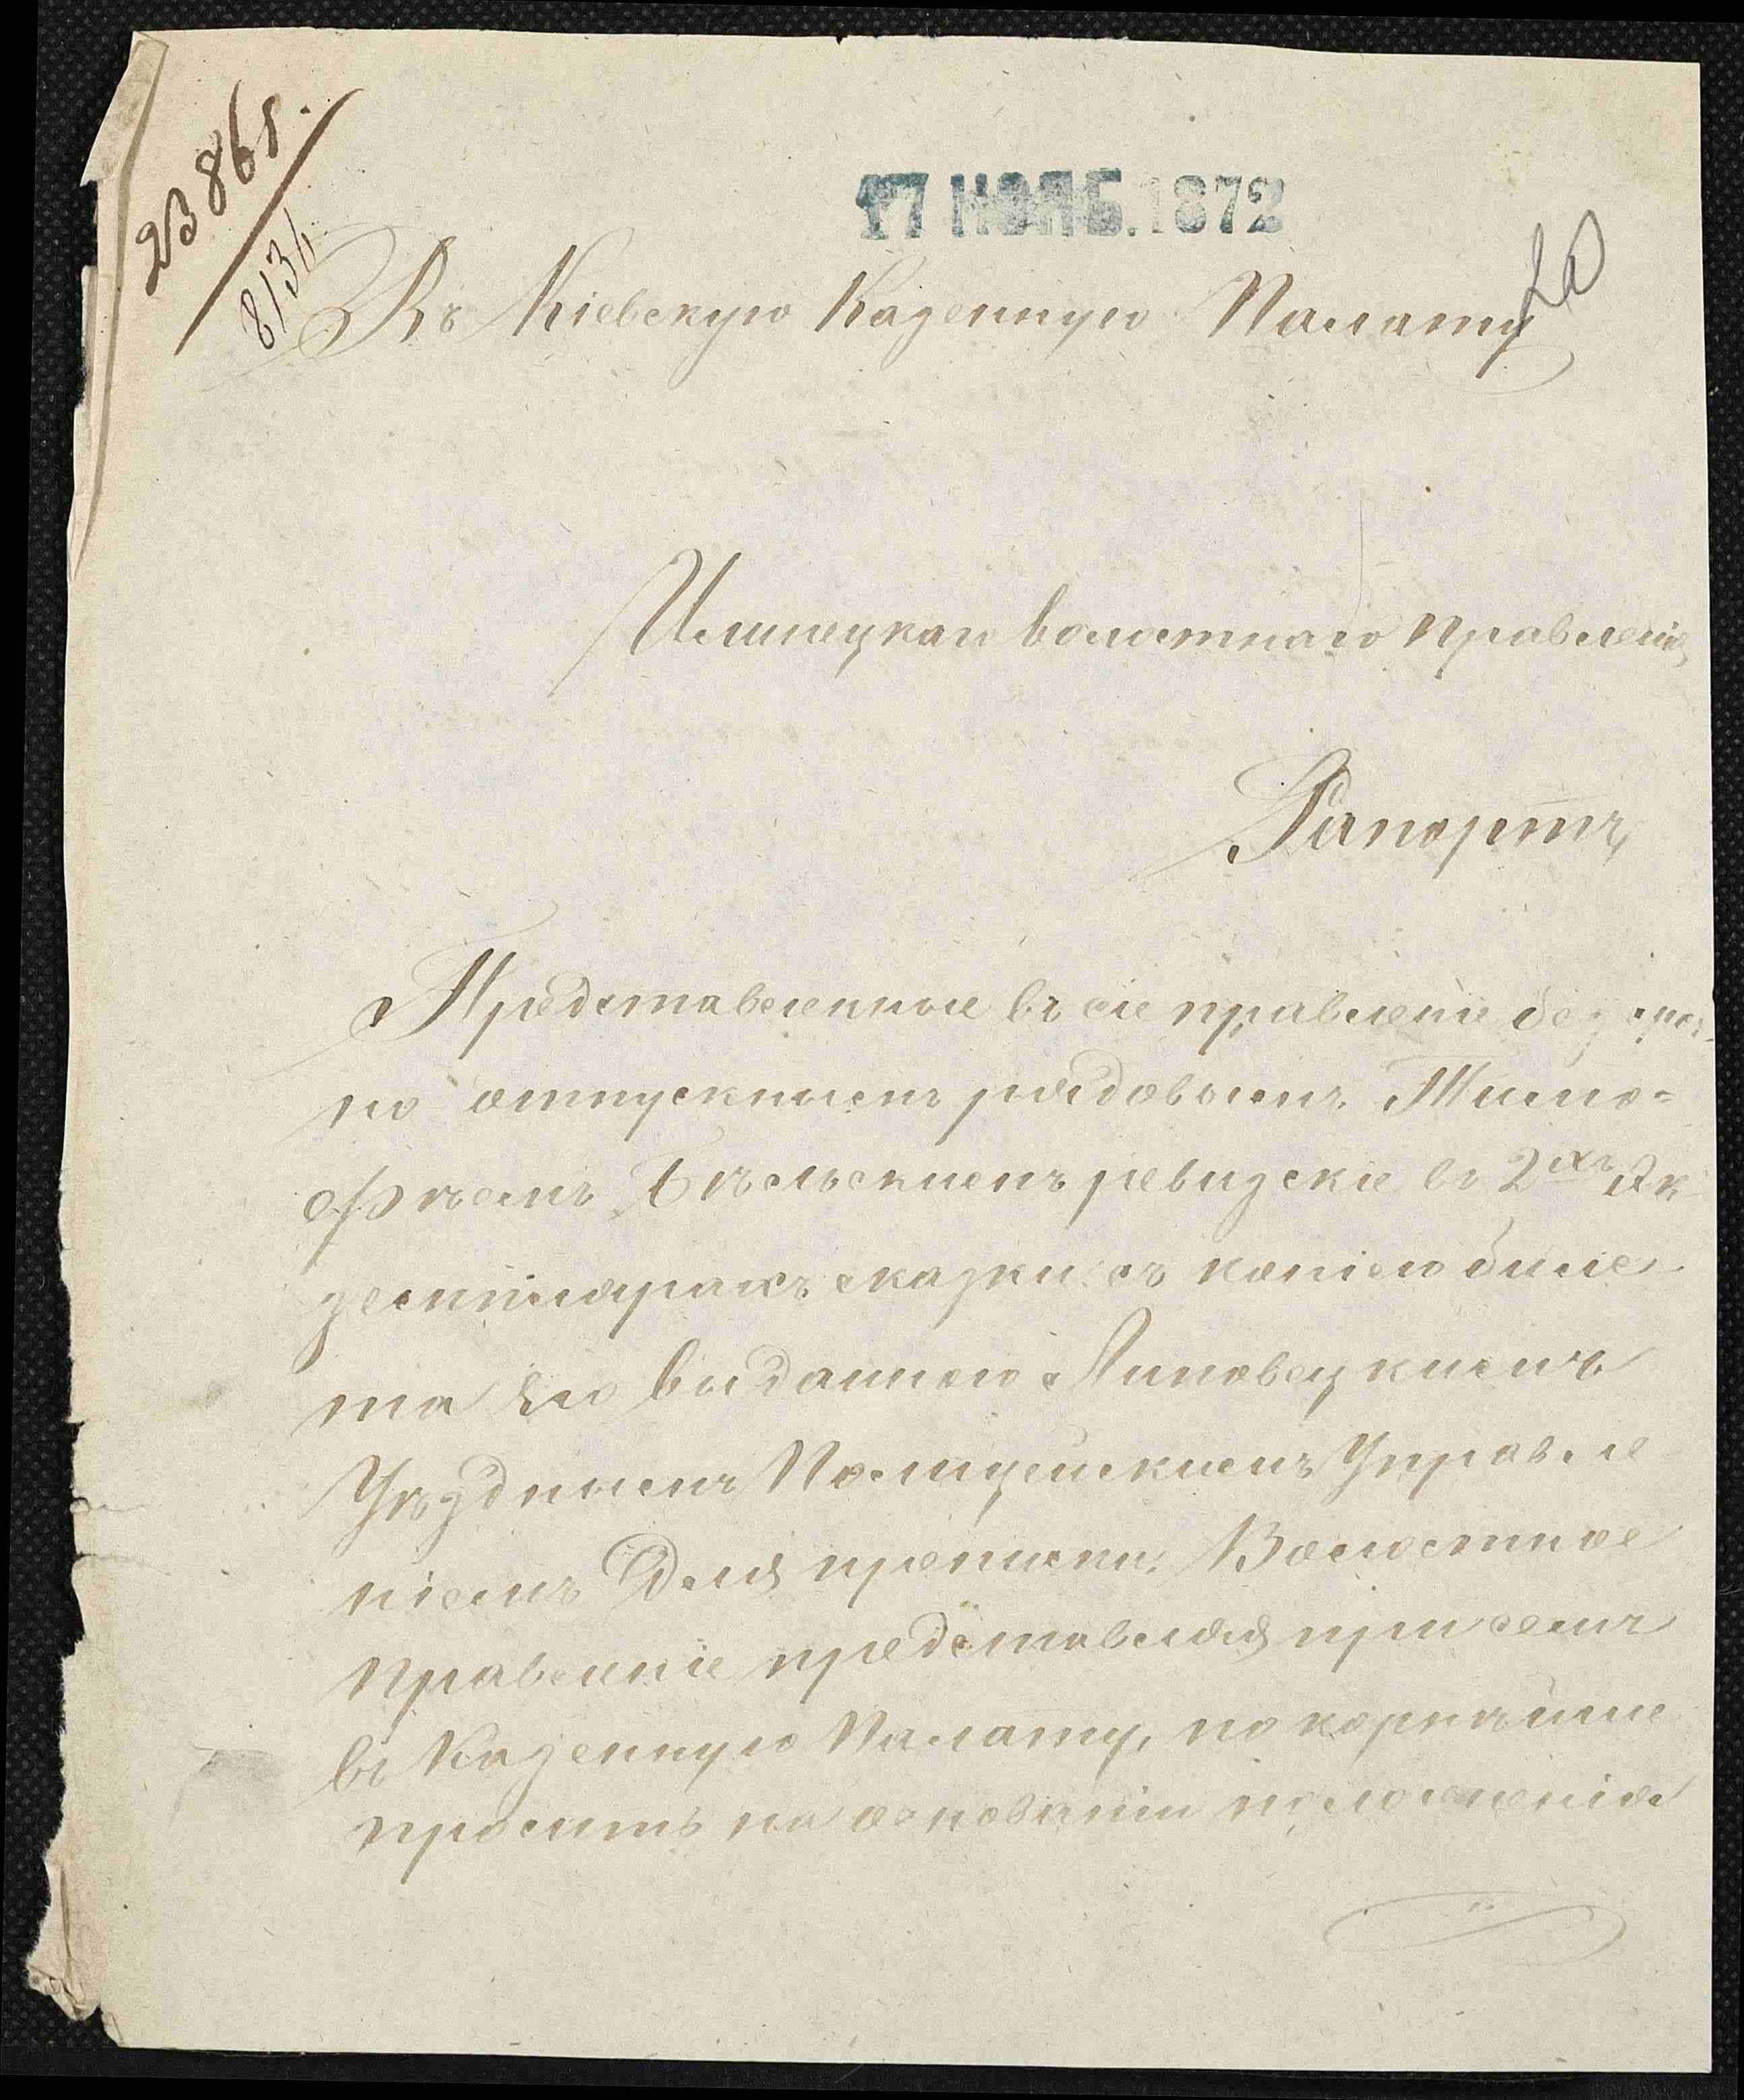 23865.
8134
17 НОЯБ. 1872
Въ Кіевскую Казенную Палату
Илинецкаго волостнаго правленія
Рапортъ
Представленные въ сіе правленіе без сроч-
но отпускнымъ рядовымъ Тимо=
феемъ Бѣльскимъ ревизскіе въ 2хъ Эк
земплярахъ сказки съ копіею биле
та его выданного Липовецкимъ
Уѣзднымъ Полицейскимъ Управле
ніемъ для прописки. Волостное
правленіе представляя при семъ
въ Казенную Палату, покорнѣйше
проситъ на основаніи положенія